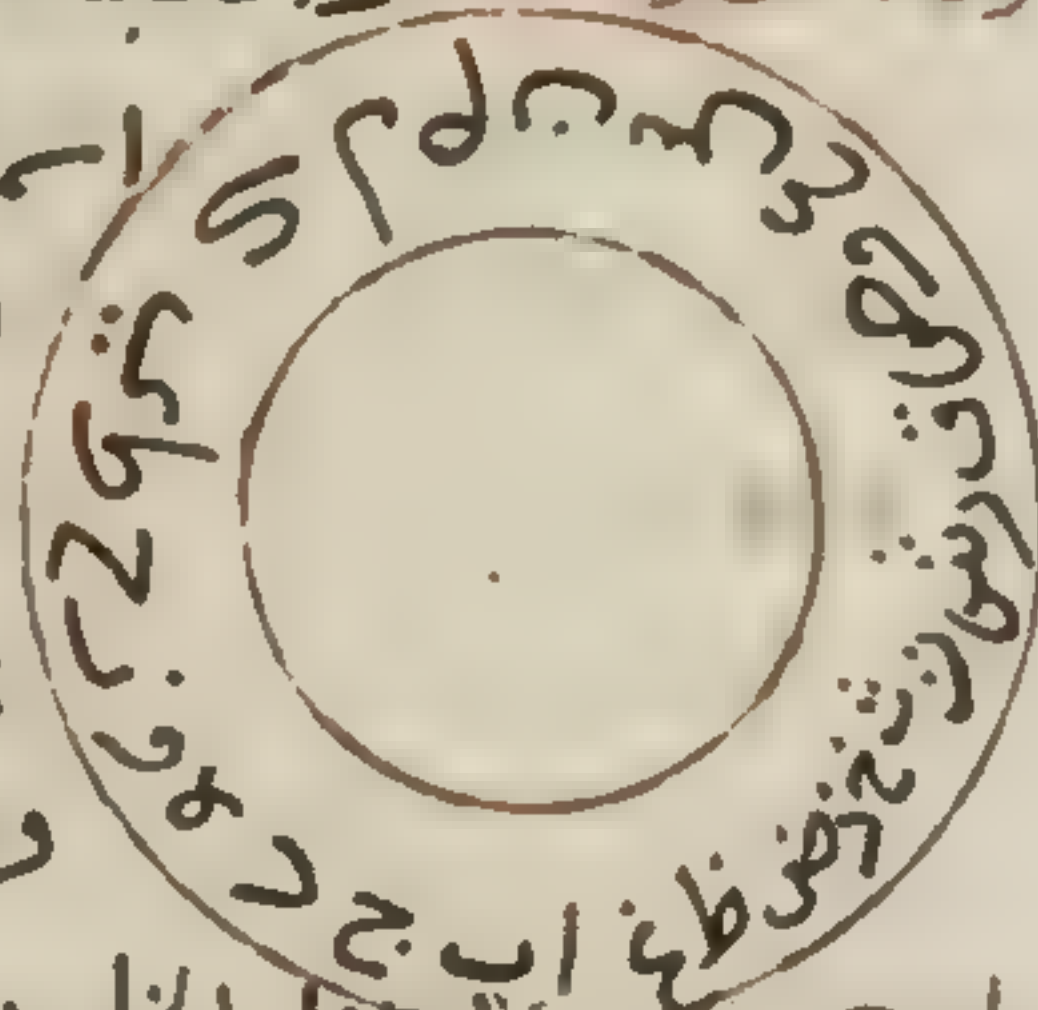 ا ب ج د ه و ز ح ط ي ك ل م ن س ع ف ص ق ر ش ت ث خ ذ ض ظ غ